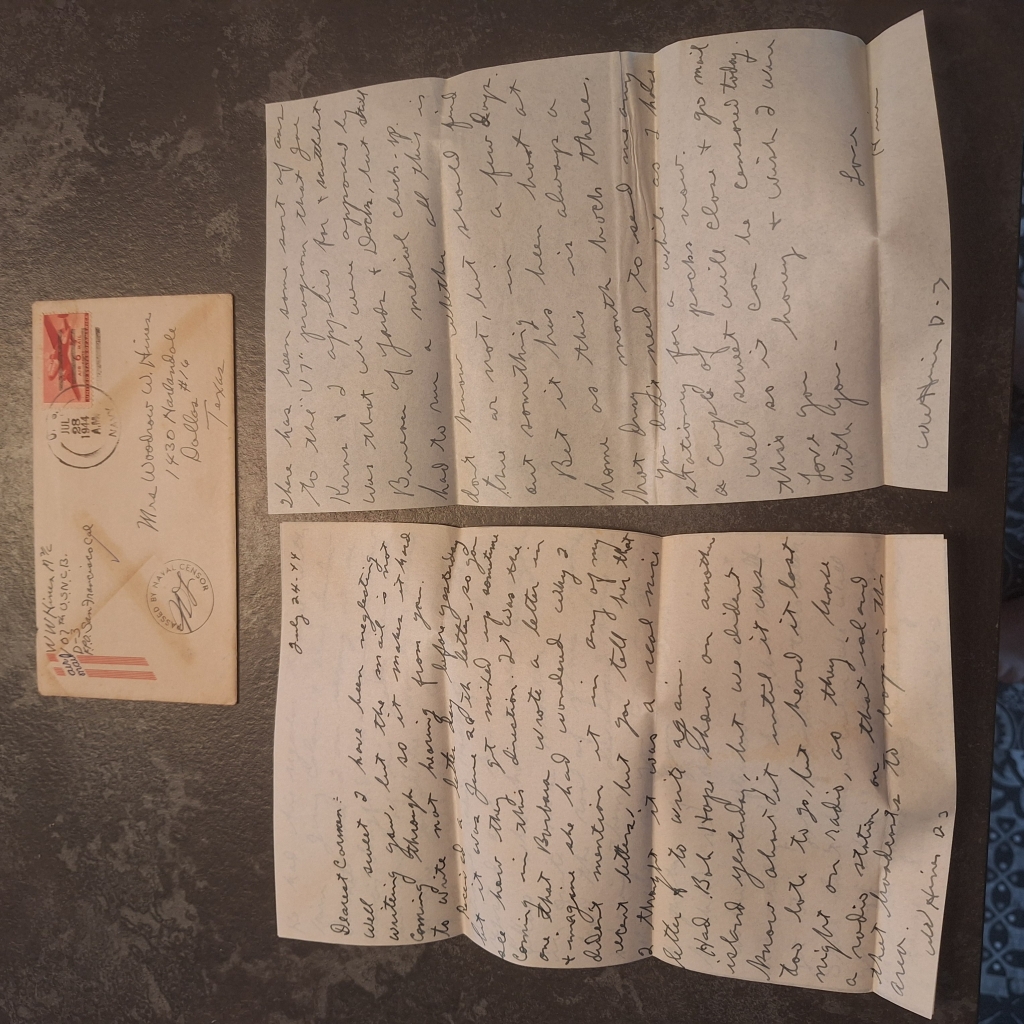 W W Hines
07th U.S.N.C.B.
D-3
FPO San Francisco Cal
AIR MAIL
PASSED BY NAVAL CENSOR
JUL
28
1944
A.M.
NAVY
6¢
Mrs Woodrow W Hines
1430 Harlandale
Dallas #16
Texas
July 24-44
Dearest Corman:-
Well sweet I have been neglecting
writing you, but the mail is not
coming through so it makes it hard
to write not hearing from you.
Received a letter day before yesterday
but it was June 27th letter, so you
see how they get mixed up sometime
coming in this direction. It was the
one that Barbara wrote a letter in
& imagine she had wondered why I
didn't mention it in any of my
recent letters, but you tell her that
I thought it was a real nice
letter & to write again.
Had Bob Hope Show on another
island yesterday, but we didn't
know about it until it was
too late to go, but heard it last
night on radio, as they have
a radio station on that island
that broadcasts to troops in this
area.
WW Hines D3
There has been some sort of an
to the "V7" program that you
Kerns & I applied for & all that
was that we were approved by
Bureau of yards & Docks, but still
had to run a medical check-up.
don't know whether all this is
true or not, but should find
out something in a few days.
But it has been hot at
home as this is always a
hot dry month back there.
you don't need to send me any
stationary for a while as I have
a couple of packs now.
Well sweet will close & go mail
this so it can be censored today.
Love you honey & wish I were
with you -
Love
WW Hines D-3